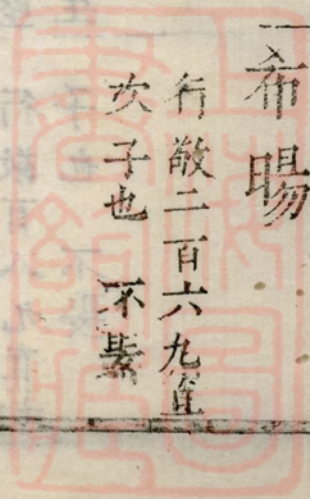 希暘
行敬二百六九直
次子也　不娶